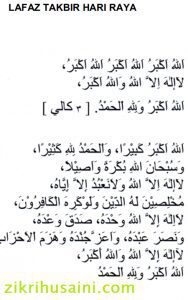 LAFAZ TAKBIR HARI RAYA
اَللهُ اَكْبَرُ اَللهُ اَكْبَرُ اَللهُ اَكْبَرُ،
لاَاِلهَ اِلاَّ اللهُ وَاللهُ اَكْبَرُ،
اَللهُ اَكْبَرُ وَلِلّهِ الْحَمْدُ. [ ٣ كالي ]
اَللهُ اَكْبَرُ كَبِيْرًا، وَالْحَمْدُ لِلّهِ كَثِيْرًا،
وَسُبْحَانَ اللهِ بُكْرَةً وَاَصِيْلاً،
لاَاِلهَ اِلاَّ اللهُ وَلاَنَعْبُدُ اِلاَّ اِيَّاهُ،
مُخْلِصِيْنَ لَهُ الدِّيْنَ وَلَوْكَرِهَ الْكَافِرُوْنَ،
لاَاِلهَ اِلاَّ اللهُ وَحْدَهُ، صَدَقَ وَعْدَهُ،
وَنَصَرَ عَبْدَهُ، وَاَعَزَّجُنْدَهُ وَهَزَمَ الْاَحْزَابَ
لاَاِلهَ اِلاَّ اللهُ وَاللهُ اَكْبَرُ،
اَللهُ اَكْبَرُ وَلِلّهِ الْحَمْدُ
zikrihusaini.com